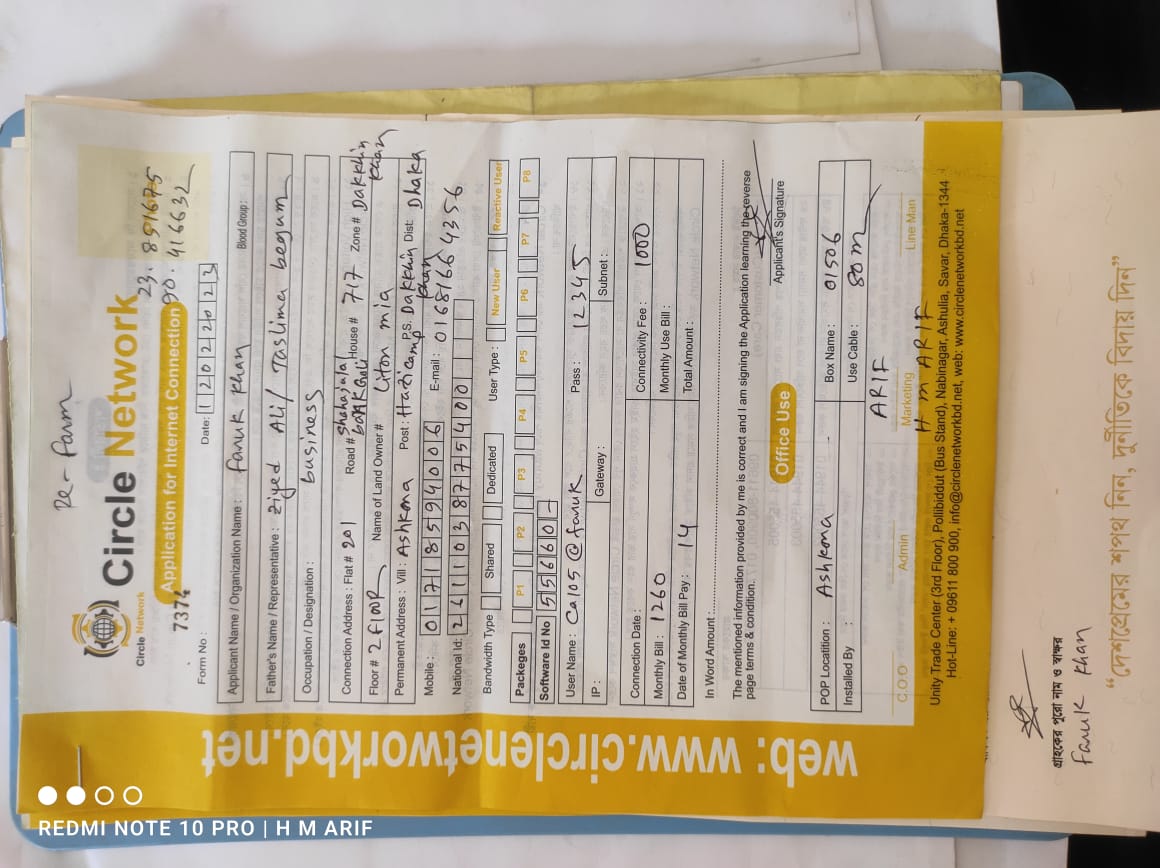 Re-Farm
Circle Network
Circle Network
Application for Internet Connection
23. 891675
90. 416632
7374
Form No :
Date: 12022023
Applicant Name / Organization Name : Faruk Khan Blood Group :
Father's Name / Representative : Ziyed Ali/ Taslima begum
Occupation / Designation : business
Connection Address : Flat # 201 Road # Shahajalal House # 717 Zone # Dakkhin Khan
Floor # 2 Floor Name of Land Owner # Liton mia
Permanent Address : Vill : Ashkona Post : Hazicamp P.S. Dakkhin Khan Dist: Dhaka
Mobile : 01718594006 E-mail : 01681664356
National Id: 2611038775400
Bandwidth Type : Shared Dedicated User Type : New User Reactive User
Packeges P1 P2 P3 P4 P5 P6 P7 P8
Software Id No 55660-
User Name : Ca105@faruk Pass : 12345
IP : Gateway : Subnet :
Connection Date : Connectivity Fee : 1000
Monthly Bill : 1260 Monthly Use Bill :
Date of Monthly Bill Pay : 14 Total Amount :
In Word Amount :
The mentioned information provided by me is correct and I am signing the Application learning the reverse
page terms & condition.
Applicant's Signature
Office Use
POP Locatition : Ashkona Box Name : 01506
Installed By : Use Cable : 80m
ARIF
C.O.O Admin Marketing Line Man
H m ARIF
Unity Trade Center (3rd Floor), Pollibiddut (Bus Stand), Nabinagar, Ashulia, Savar, Dhaka-1344
Hot-Line: + 09611 800 900, info@circlenetworkbd.net, web: www.circlenetworkbd.net
web: www.circlenetworkbd.net
গ্রাহকের পুরো নাম ও স্বাক্ষর
Faruk Khan
“দেশপ্রেমের শপথ নিন, দুর্নীতিকে বিদায় দিন”
REDMI NOTE 10 PRO | H M ARIF